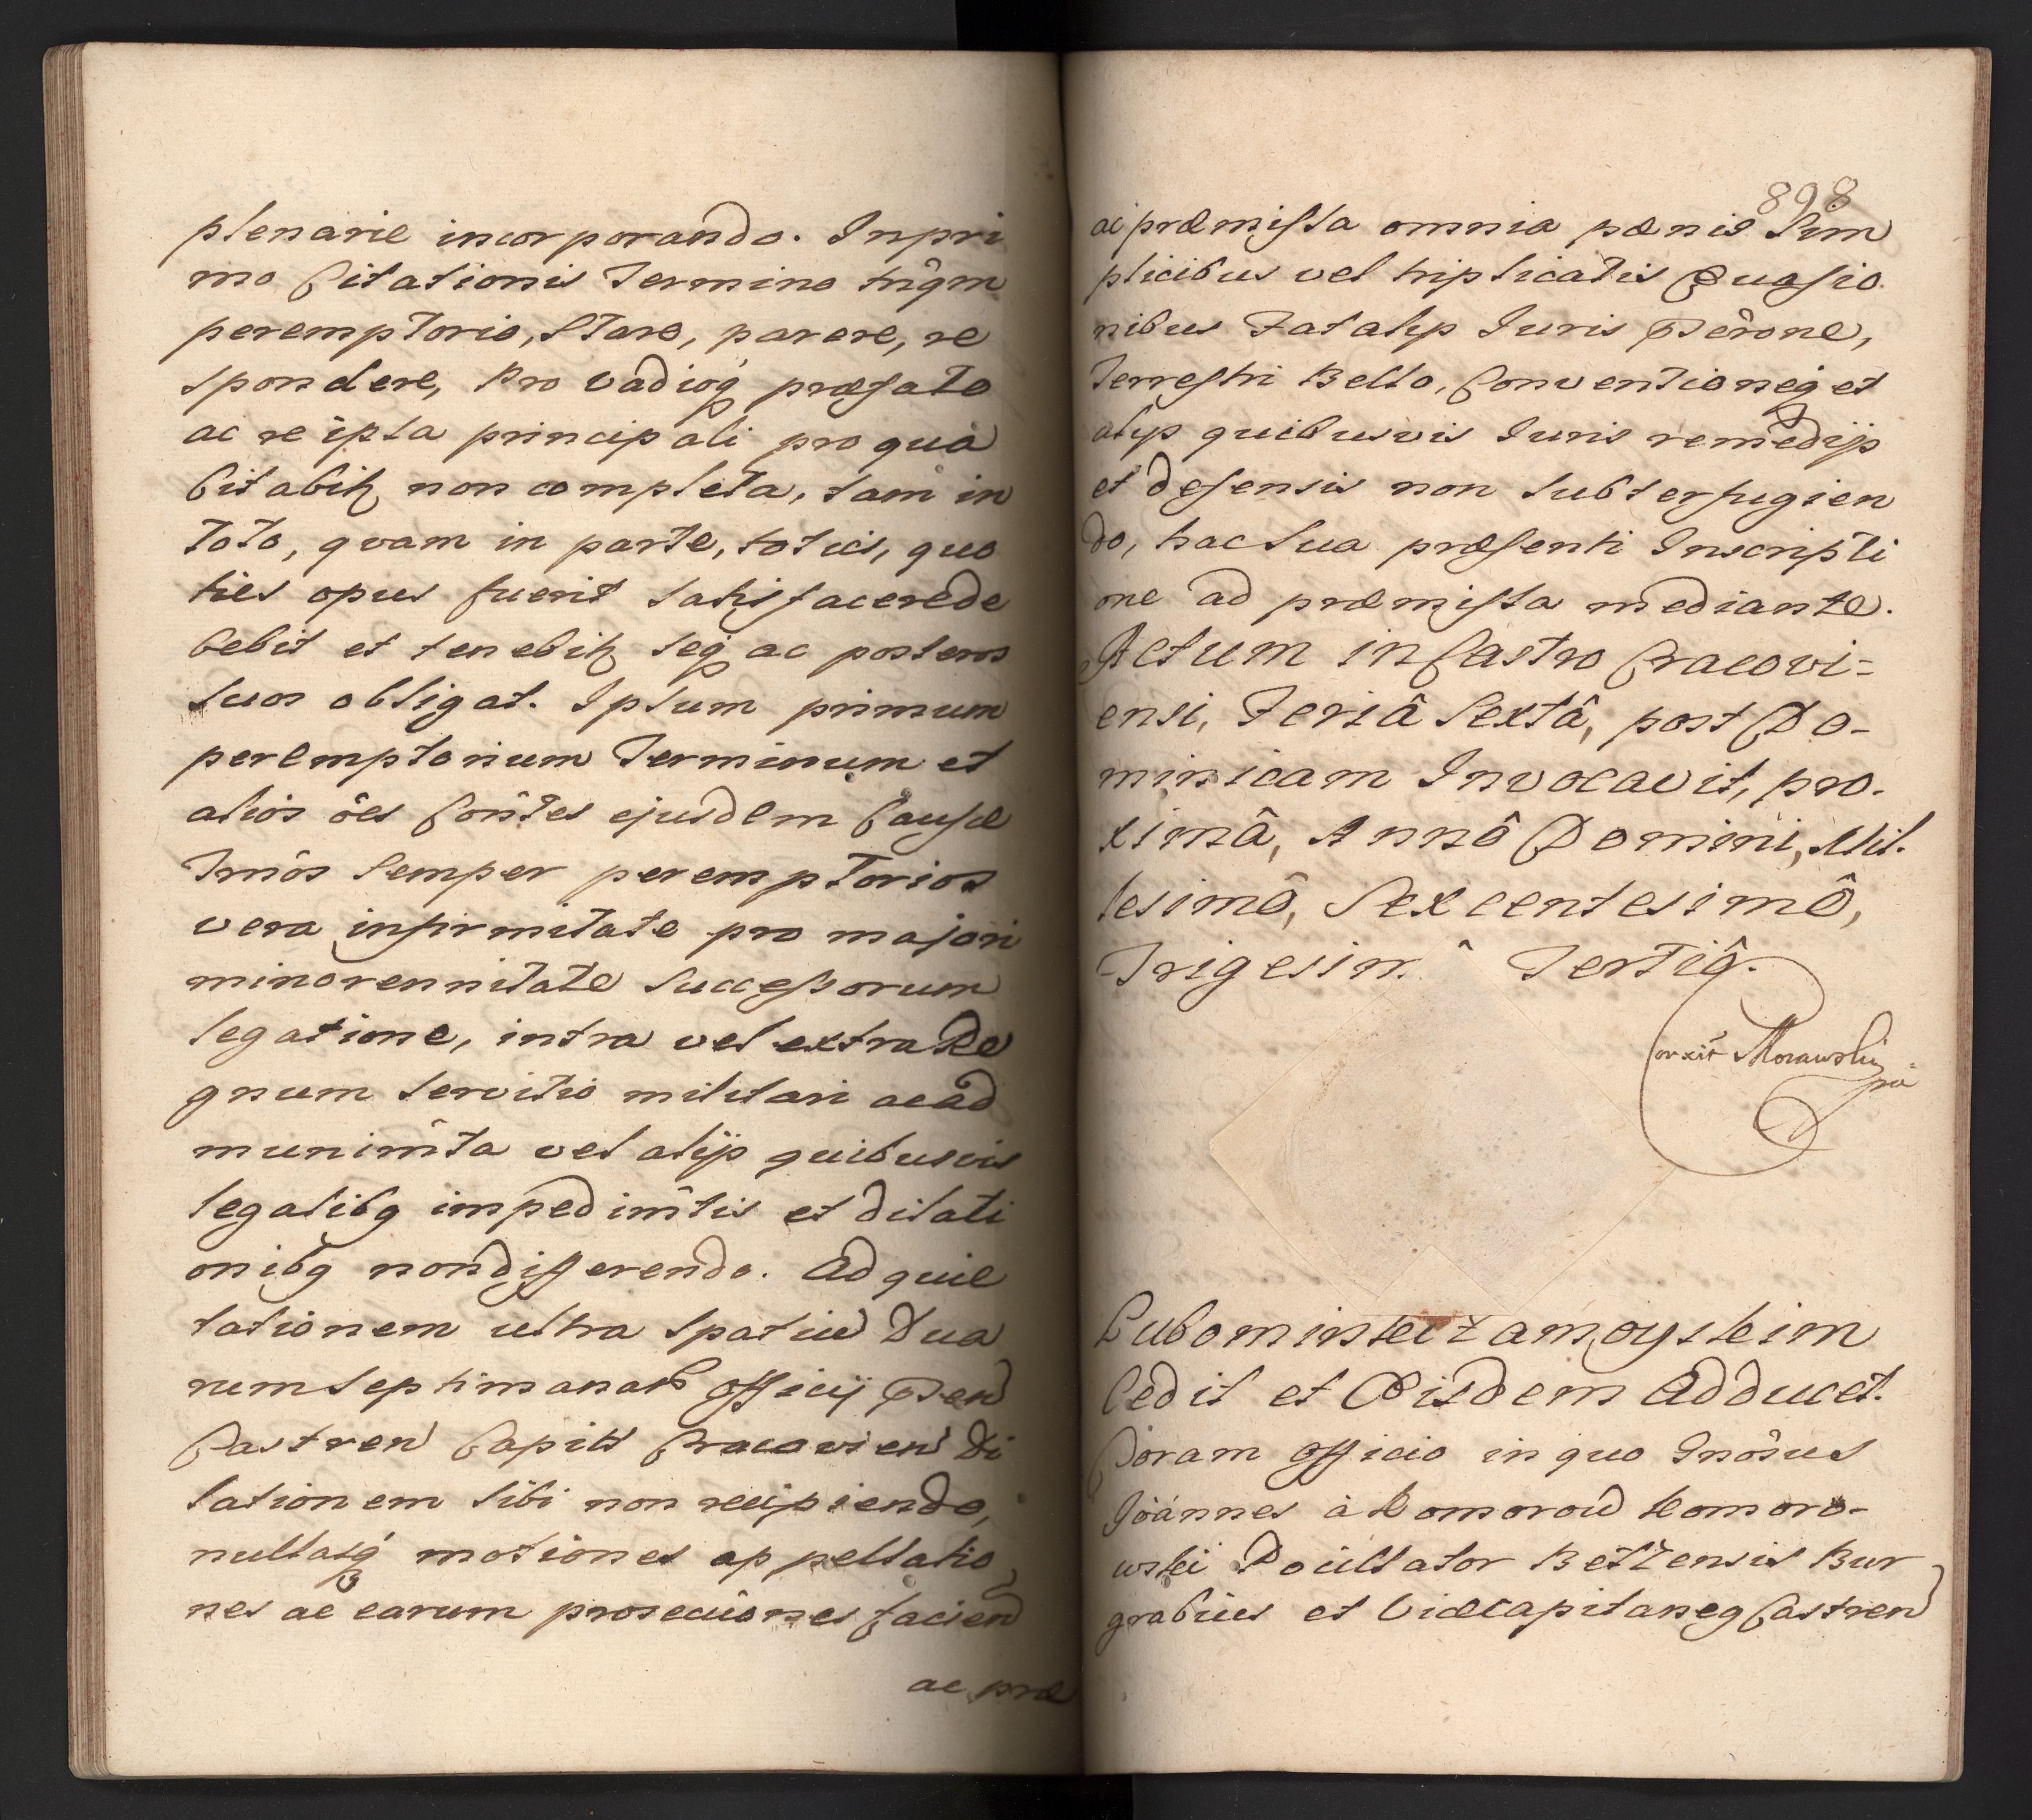 plenarie incorporando. Inpri
mo Citationis Termino tnq̃m
peremptorio, Stare, parere, re
spondere, Pro vadioq́ præfato
ac re ipsa principali pro qua
Citabitꝶ non completa, tam in
toto, qvam in parte, toties, quo
ties opus fuerit satisfacere de
bebit et tenebitꝶ seq́ ac posteros
suos obligat. Ipsum primum
peremptorium Terminum et
alios ões Cońtes ejusdem Causæ
Tmôs semper peremptorios
vera infirmitate pro majori
minorennitate Successorum
legatione, intra vel extra Re
gnum servitio militari ac ad
munim̃ta vel alijs quibusvis
legalibq impedim̃tis et dilati
onibq non differendo. Ad quie
tationem ultra spatiũ Dua
rum septimanaꝝ officij Pñen
Castren Capitĩ Cracovien Di
lationem sibi non recipiendo,
nullasq́ motiones appellatio
nes ac earum prosecuônes facien
ac præ
898
ac præmissa omnia pænis Sim
plicibus vel triplicatis Evasio
nibus Fatalijs Iuris Pñône,
Terrestri Bello, Conventioneq́ et
alijs quibusvis Iuris remedijs
et defensis non subterfugien
do, hac sua præsenti Inscripti
one ad præmissa mediante.
Actum in Castro Cracovi=
ensi, Feriâ Sextâ, post Do-
minicam Invocavit, pro-
ximâ, Annô Domini, Mil-
lesimô, Sexcentesimô,
Trigesim̂ Tertiô.
Corxit Morawski
mp
Lubomirski Zamoyskim
Cedit et Eisdem Adducet.
Coram officio in quo Gnôsus
Ioánnes à Komorow Komoro-
wski Pocillator Belzensis Bur
grabius et Vicecapitaneq Castren